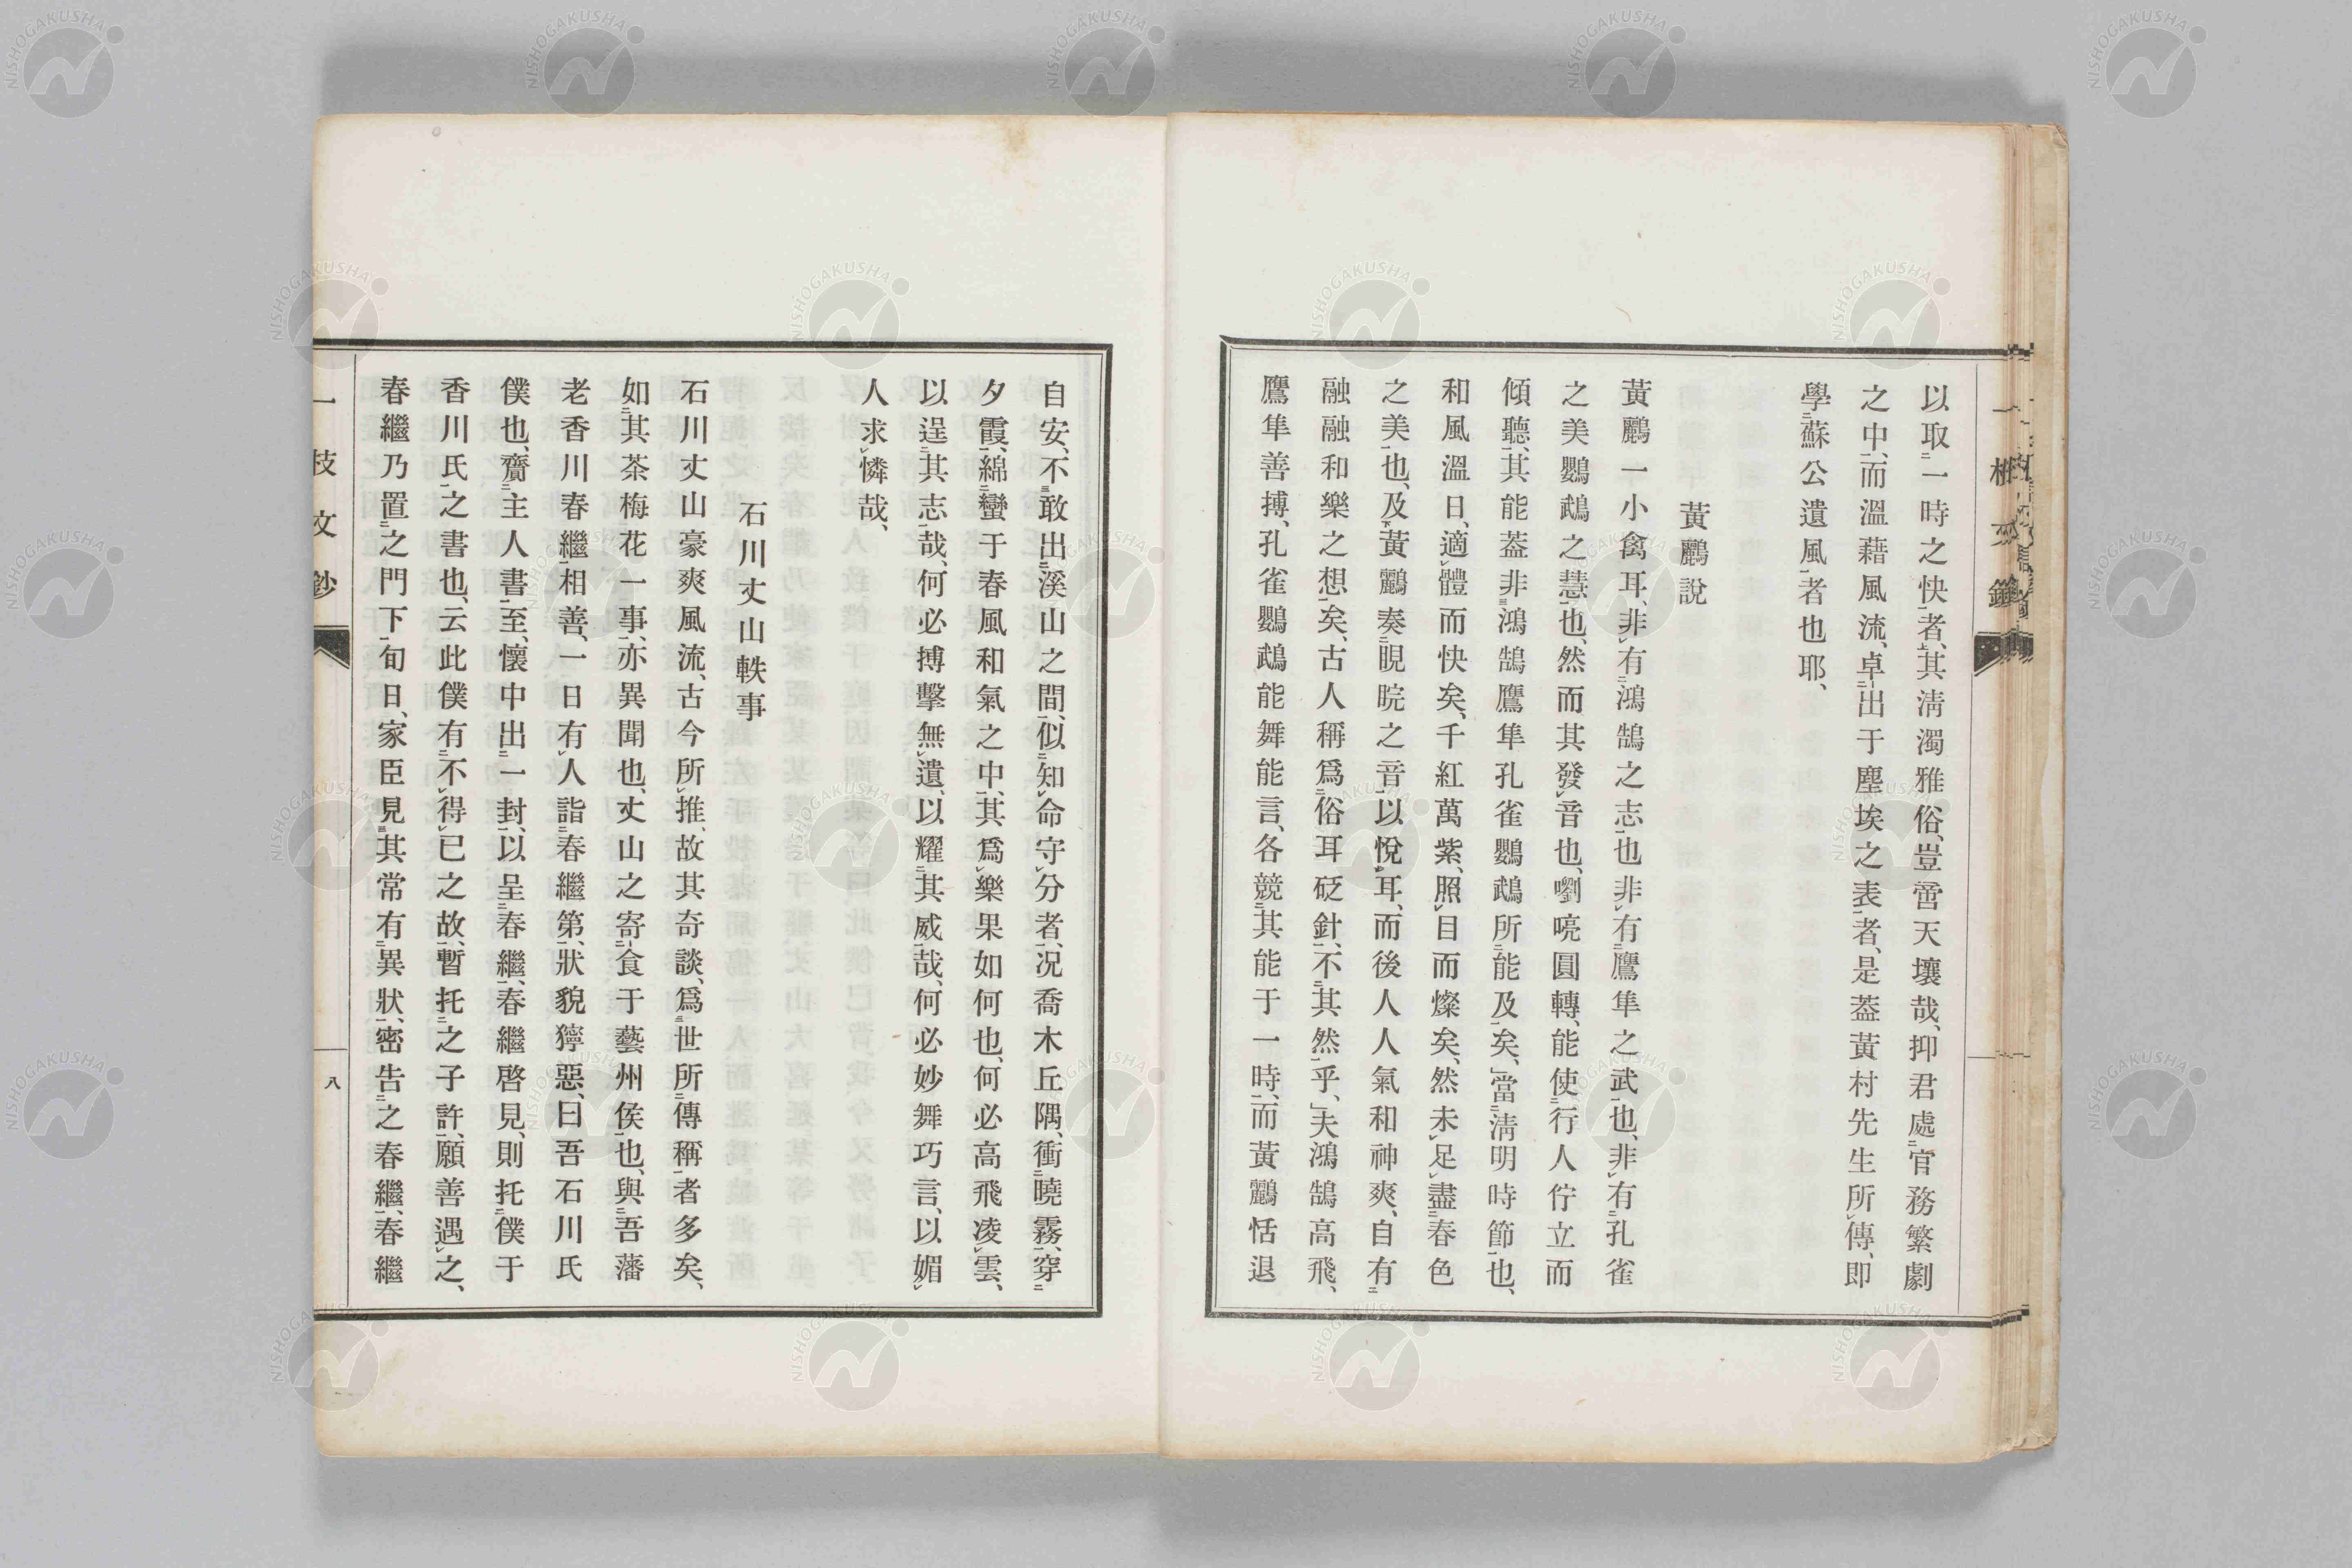 以取一時之快者、其淸濁雅俗、豈啻天壤哉、抑君處官務繁劇
之中、而溫藉風流、卓出于塵埃之表者、是葢黃村先生所傳、卽
學蘇公遺風者也耶、
黃鸝說
黃鸝一小禽耳、非有鴻鵠之志也非有鷹隼之武也、非有孔雀
之美鸚鵡之慧也、然而其發音也、嚠喨圓轉、能使行人佇立而
傾聽、其能葢非鴻鵠鷹隼孔雀鸚鵡所能及矣、當淸明時節也、
和風溫日、適體而快矣、千紅萬紫、照目而燦矣、然未足盡春色
之美也、及黃鸝奏睍睆之音以悅耳、而後人人氣和神爽、自有
融融和樂之想矣、古人稱爲俗耳砭針、不其然乎、夫鴻鵠高飛、
鷹隼善搏、孔雀鸚鵡能舞能言、各競其能于一時、而黃鸝恬退
自安、不敢出溪山之間、似知命守分者、况喬木丘隅、衝曉霧、穿
夕霞、綿蠻于春風和氣之中、其爲樂果如何也、何必高飛凌雲、
以逞其志哉、何必搏擊無遺、以耀其威哉、何必妙舞巧言、以媚
人求憐哉、
石川丈山軼事
石川丈山豪爽風流、古今所推、故其奇談、爲世所傳稱者多矣、
如其茶梅花一事、亦異聞也、丈山之寄食于藝州侯也、與吾藩
老香川春繼相善、一日有人詣春繼第、狀貌獰惡、曰吾石川氏
僕也、齎主人書至、懷中出一封、以呈春繼、春繼啓見、則托僕于
香川氏之書也、云此僕有不得已之故、暫托之子許、願善遇之、
春繼乃置之門下、旬日、家臣見其常有異狀、密告之春繼、春繼
一枝文鈔
八